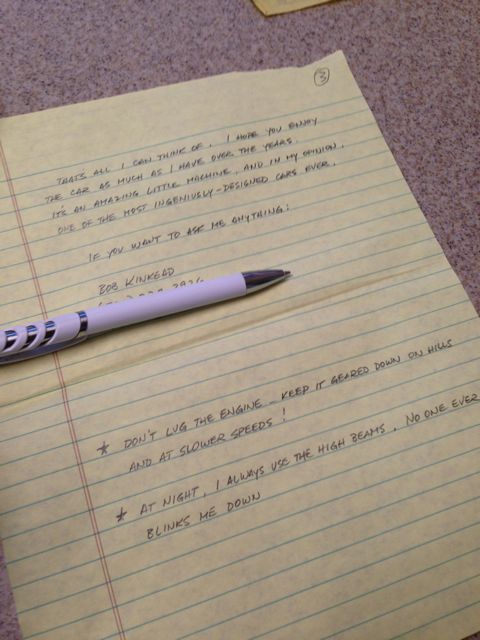 3
THAT'S ALL I CAN THINK OF. I HOPE YOU ENJOY
THE CAR AS MUCH AS I HAVE OVER THE YEARS.
IT'S AN AMAZING LITTLE MACHINE, AND IN MY OPINION,
ONE OF THE MOST INGENIUSLY-DESIGNED CARS EVER.
IF YOU WANT TO ASK ME ANYTHING:
BOB KINKEAD
* DON'T LUG THE ENGINE - KEEP IT GEARED DOWN ON HILLS
AND AT SLOWER SPEEDS!
* AT NIGHT, I ALWAYS USE THE HIGH BEAMS. NO ONE EVER
BLINKS ME DOWN